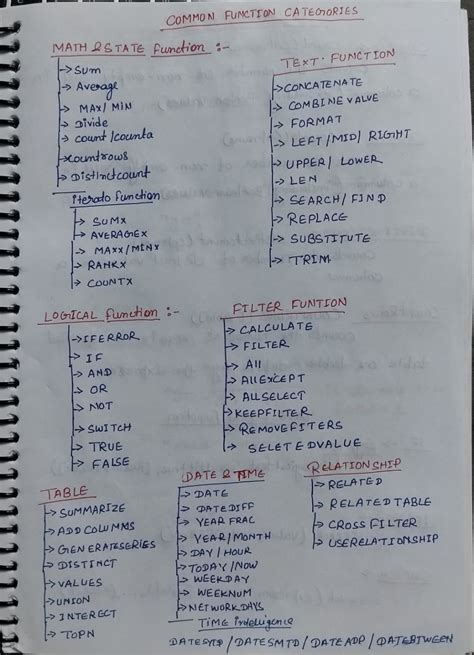 COMMON FUNCTION CATEGORIES
MATH & STATE function :-
→ Sum
→ Average
→ MAX / MIN
→ Divide
→ count / counta
→ countrows
→ Distinctcount
iterato function
→ SUMX
→ AVERAGEX
→ MAXX / MINX
→ RANKX
→ COUNTX
TEXT. FUNCTION
→ CONCATENATE
→ COMBINE VALUE
→ FORMAT
→ LEFT / MID / RIGHT
→ UPPER / LOWER
→ LEN
→ SEARCH / FIND
→ REPLACE
→ SUBSTITUTE
→ TRIM
LOGICAL function :-
→ IFERROR
→ IF
→ AND
→ OR
→ NOT
→ SWITCH
→ TRUE
→ FALSE
FILTER FUNTION
→ CALCULATE
→ FILTER
→ All
→ AllEXCEPT
→ ALLSELECT
→ KEEPFILTER
→ REMOVEFITERS
→ SELETEDVALUE
TABLE
→ SUMMARIZE
→ ADD COLUMMS
→ GENERATESERIES
→ DISTINCT
→ VALUES
→ UNION
→ INTERECT
→ TOPN
DATE & TIME
→ DATE
→ DATEDIFF
→ YEAR FRAC
→ YEAR / MONTH
→ DAY / HOUR
→ TODAY / NOW
→ WEEKDAY
→ WEEKNUM
→ NETWORKDAYS
TIME intelligence
DATESYTD / DATESMTD / DATEADD / DATEBTWEEN
RELATIONSHIP
→ RELATED
→ RELATED TABLE
→ CROSS FILTER
→ USERELATIONSHIP